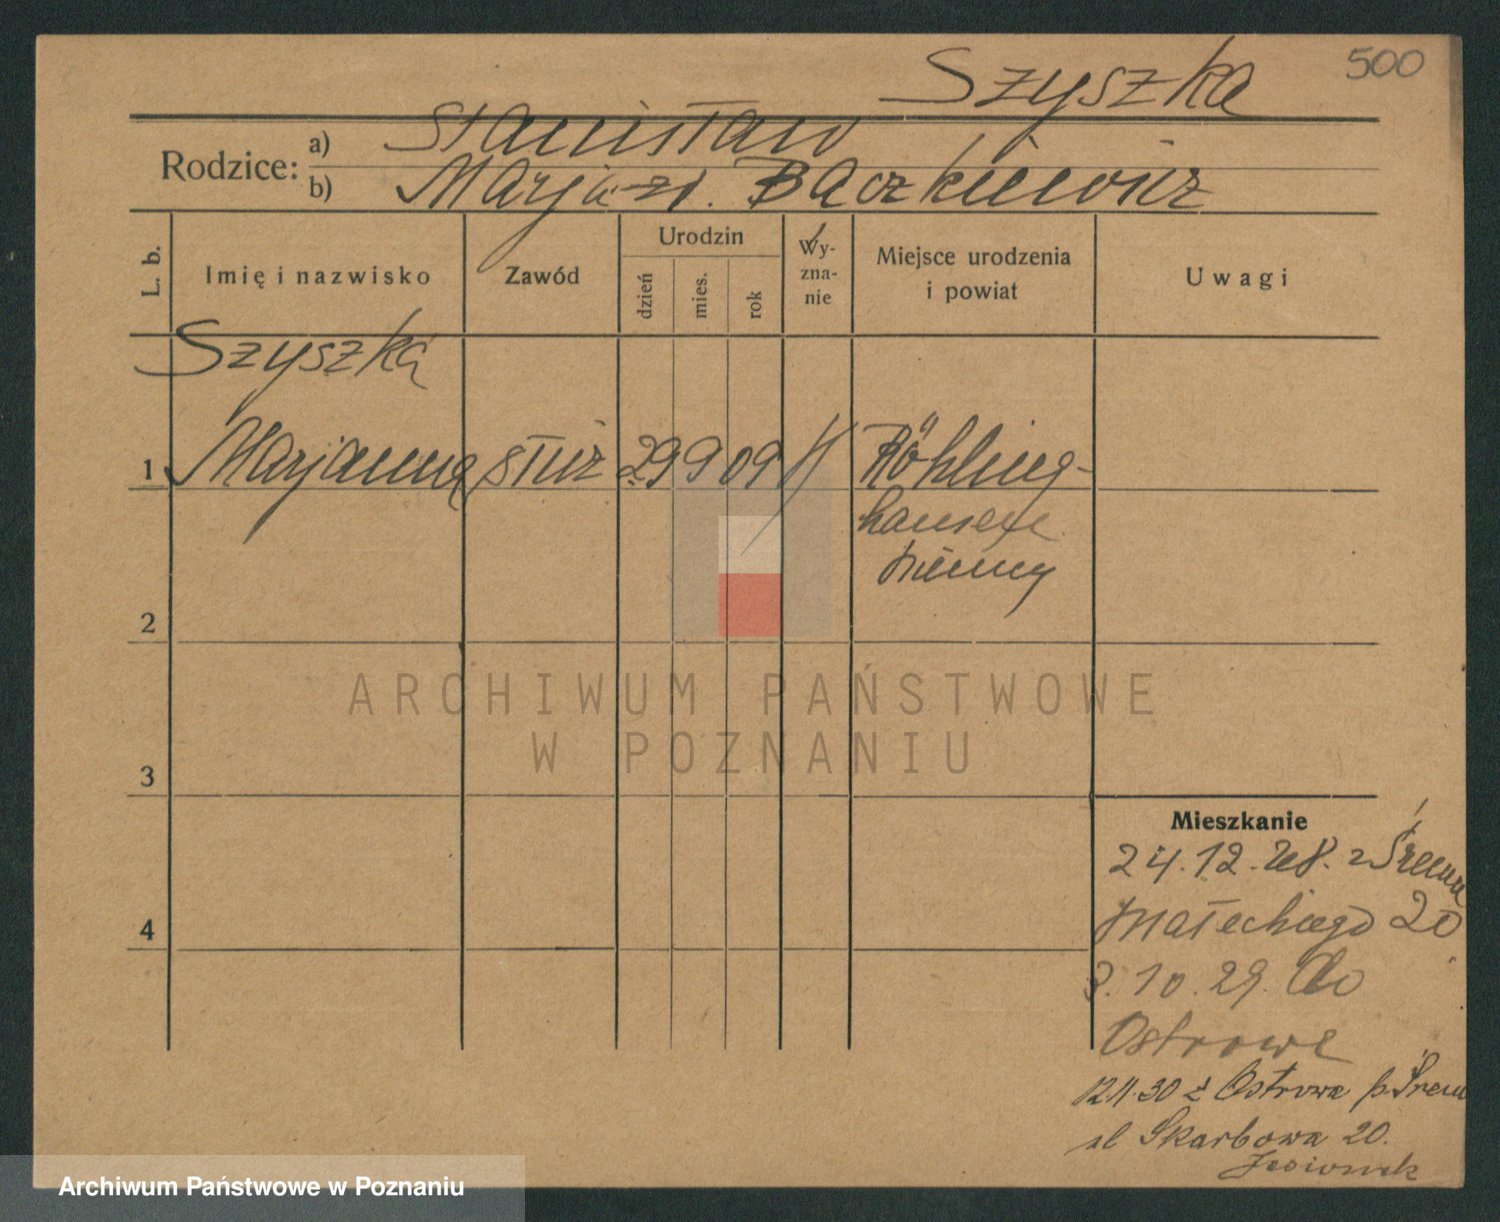 500
Szyszka
Rodzice:
a) Stanisław
b) Marja zd. Bączkiewicz
L. b.
Imię i nazwisko
Zawód
Urodzin
dzień
mies.
rok
Wy-
zna-
nie
Miejsce urodzenia
i powiat
Uwagi
Szyszka
1 Marjanna służ 29 9 09 Röhling-
hausen
Niemcy
2
3
4
ARCHIWUM PAŃSTWOWE
W POZNANIU
Mieszkanie
24.12.28. z Śremu
Małeckiego 20
3.10.29. do
Ostrowa
12.11.30 z Ostrowa p. Śrem
ul Skarbowa 20.
Archiwum Państwowe w Poznaniu